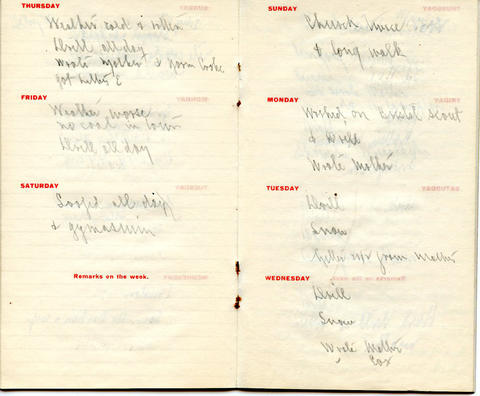 THURSDAY
Weather cold & rotten
Drill all day
Wrote Mother & Norm Cooke
got letter E
FRIDAY
Weather worse
no coal in town
Drill all day
SATURDAY
Loafed all day
& gymasuim
Remarks on the week.
SUNDAY
Church twice
& long walk
MONDAY
Worked on Bristol Scout
& Drill
Wrote Mother
TUESDAY
Drill
Snow
from Mother
WEDNESDAY
Drill
Snow
Wrote Mother
Cox